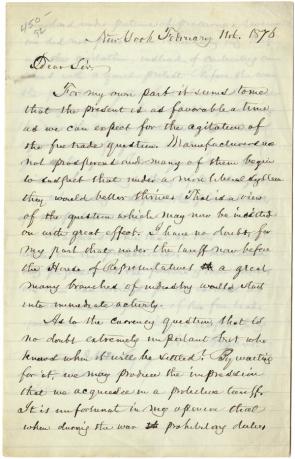 450-
52
New York February 11th. 1876
Dear Sir.
For my own part it seems to me
that the present is as favorable a time
as we can expect for the agitation of
the free trade question. Manufacturers are
not prosperous and many of them begin
to suspect that under a more liberal system
they would better thrive. This is a view
of the question which may now be insisted
on with great effect. I have no doubt, for
my part that under the tariff now before
the House of Representatives a great
many branches of industry would start
into immediate activity.
As to the currency question, that is
no doubt extremely important but who
knows when it will be settled? By waiting
for it, we may produce the impression
that we acquiesce in a protective tariff.
It is unfortunate in my opinion that
when during the war prohibitory duties